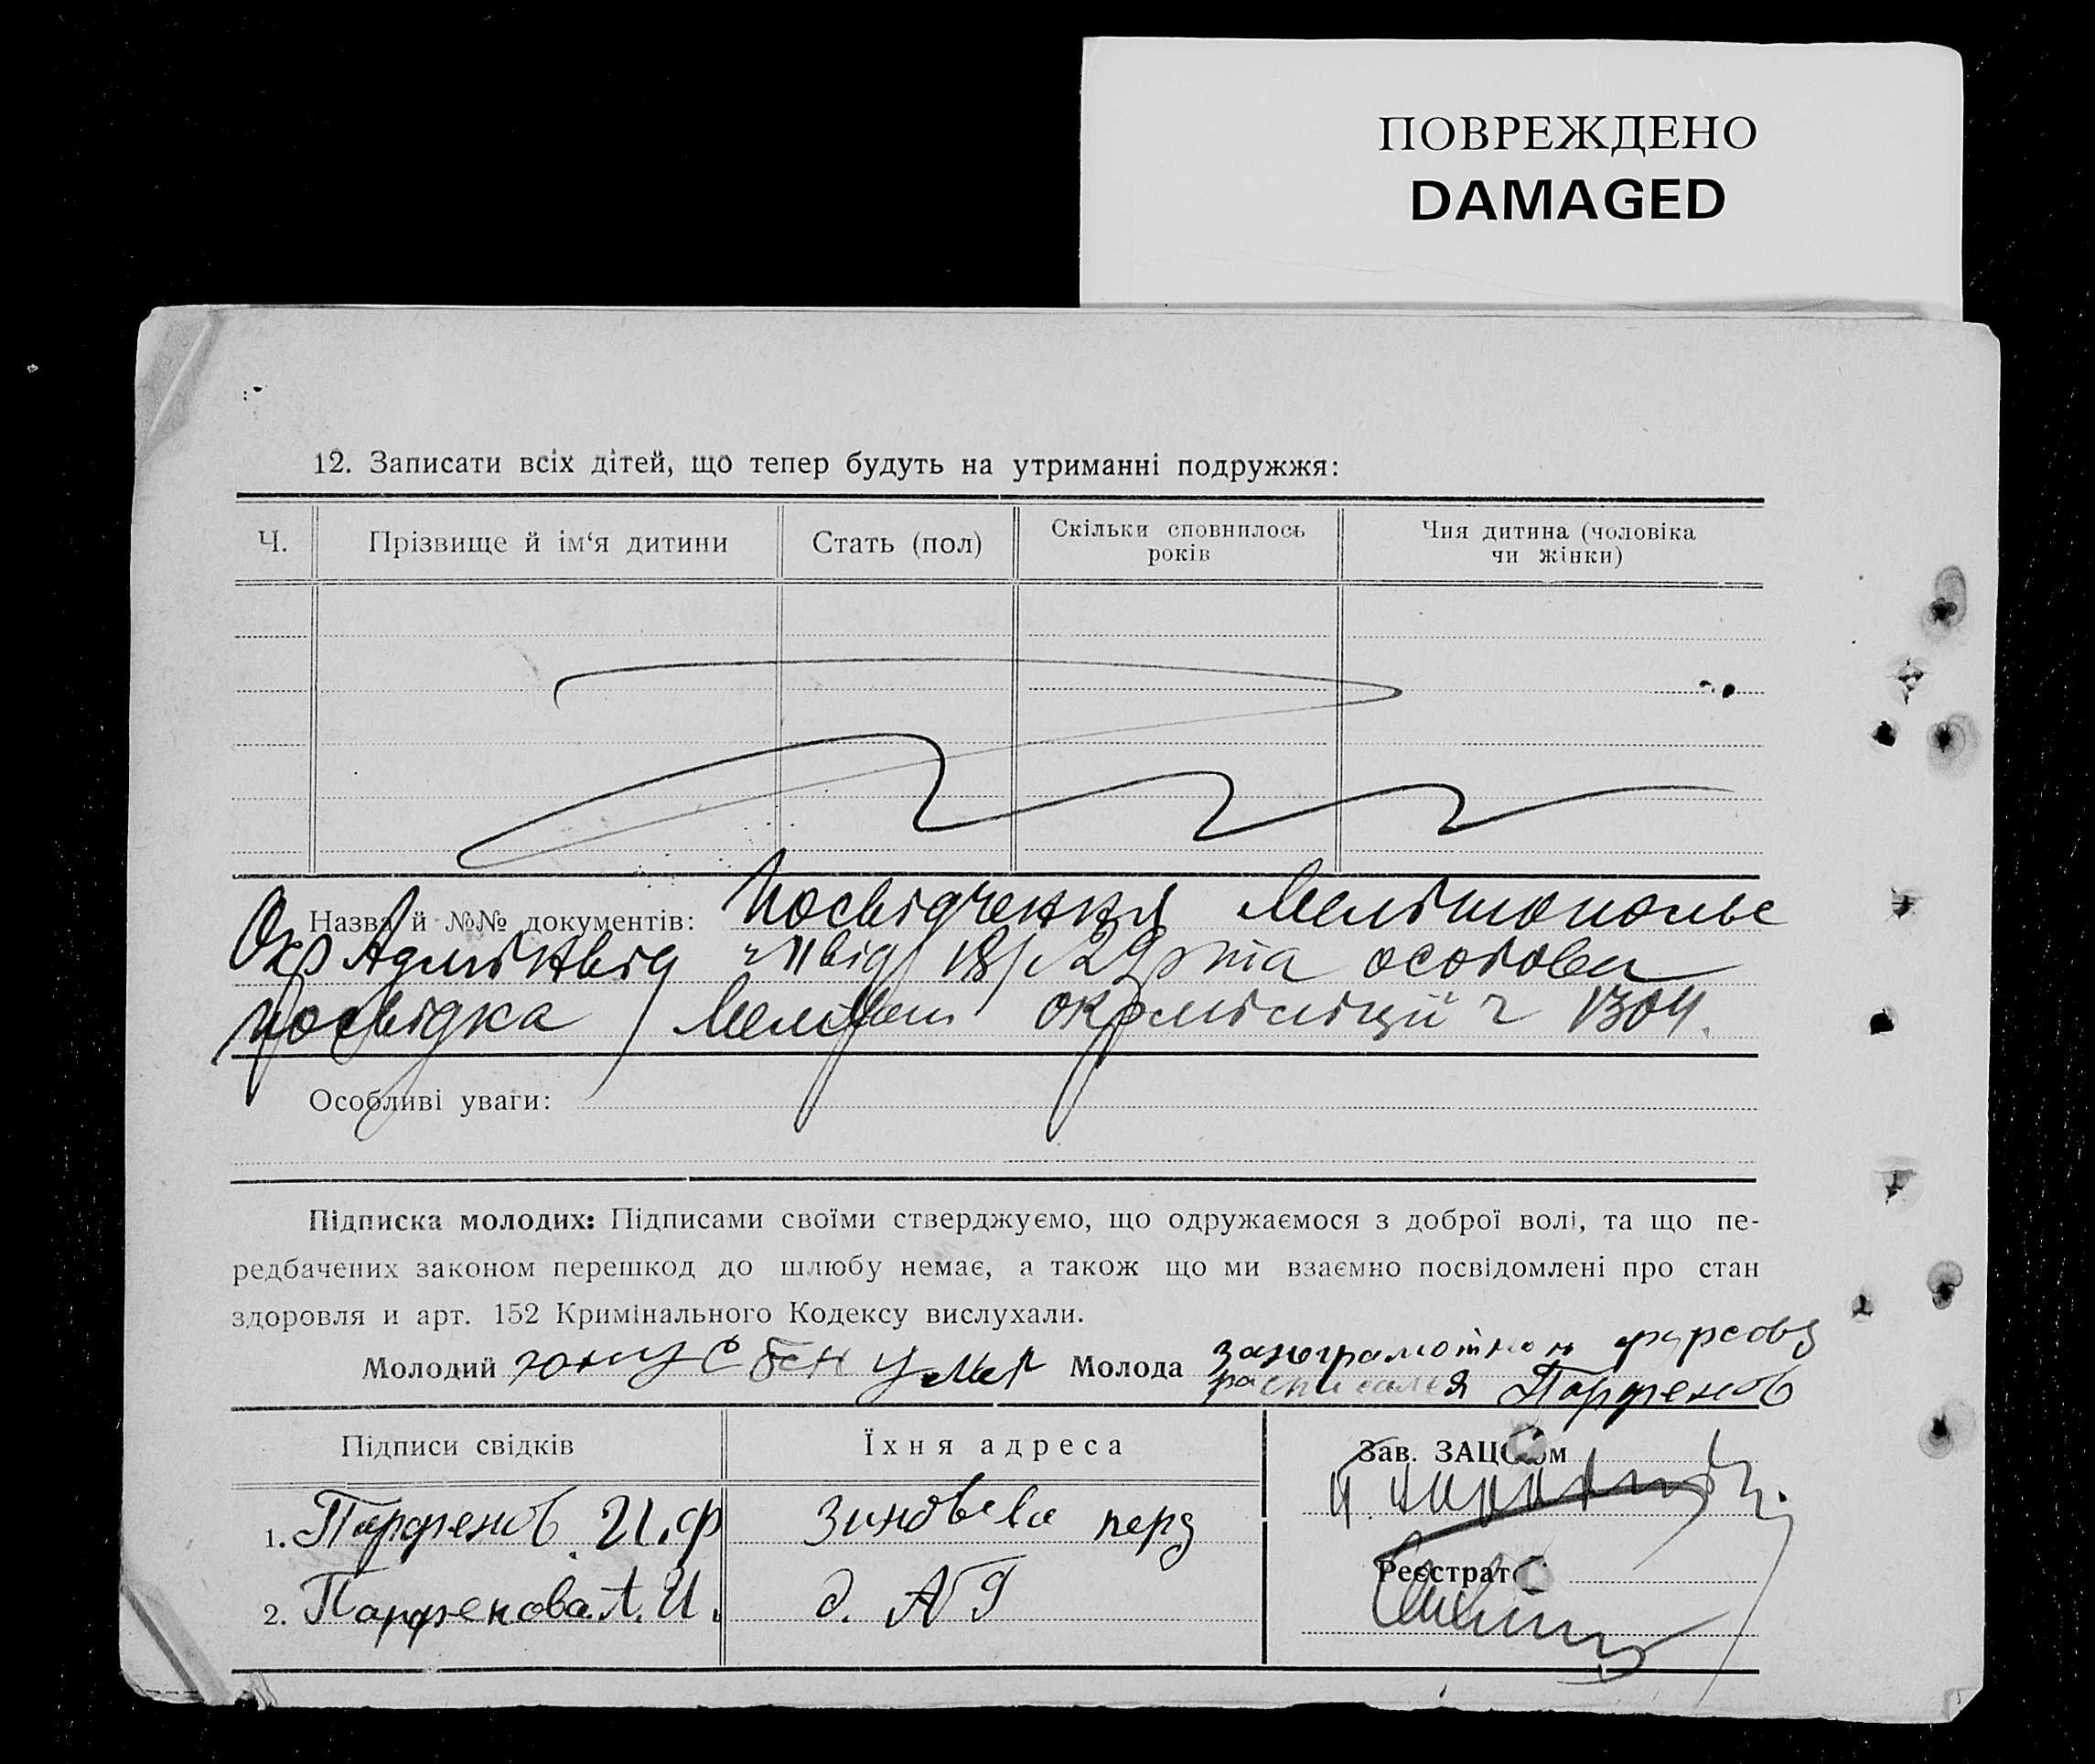 ПОВРЕЖДЕНО
DAMAGED
12. Записати всіх дітей, що тепер будуть на утриманні подружжя:
Ч. Прізвище й ім‘я дитини Стать (пол) Скільки сповнилось років Чия дитина (чоловіка чи жінки)
Назва й №№ документів: Посвідчення Мелітопольс
Окр Адмінвід від 29 р та особова
посвідка Меліт окрміліції ч 1304.
Особливі уваги:
Підписка молодих: Підписами своїми стверджуємо, що одружаємося з доброї волі, та що пе-
редбачених законом перешкод до шлюбу немає, а також що ми взаємно посвідомлені про стан
здоровля и арт. 152 Кримінального Кодексу вислухали.
Молодий юнус бен умер Молода
расписался Парфенов
Підписи свідків Їхня адреса Зав. ЗАЦСом
1. Парфенов И.Ф Зиновьева
Реєстрато
2. Парфенова А.И. д. №9